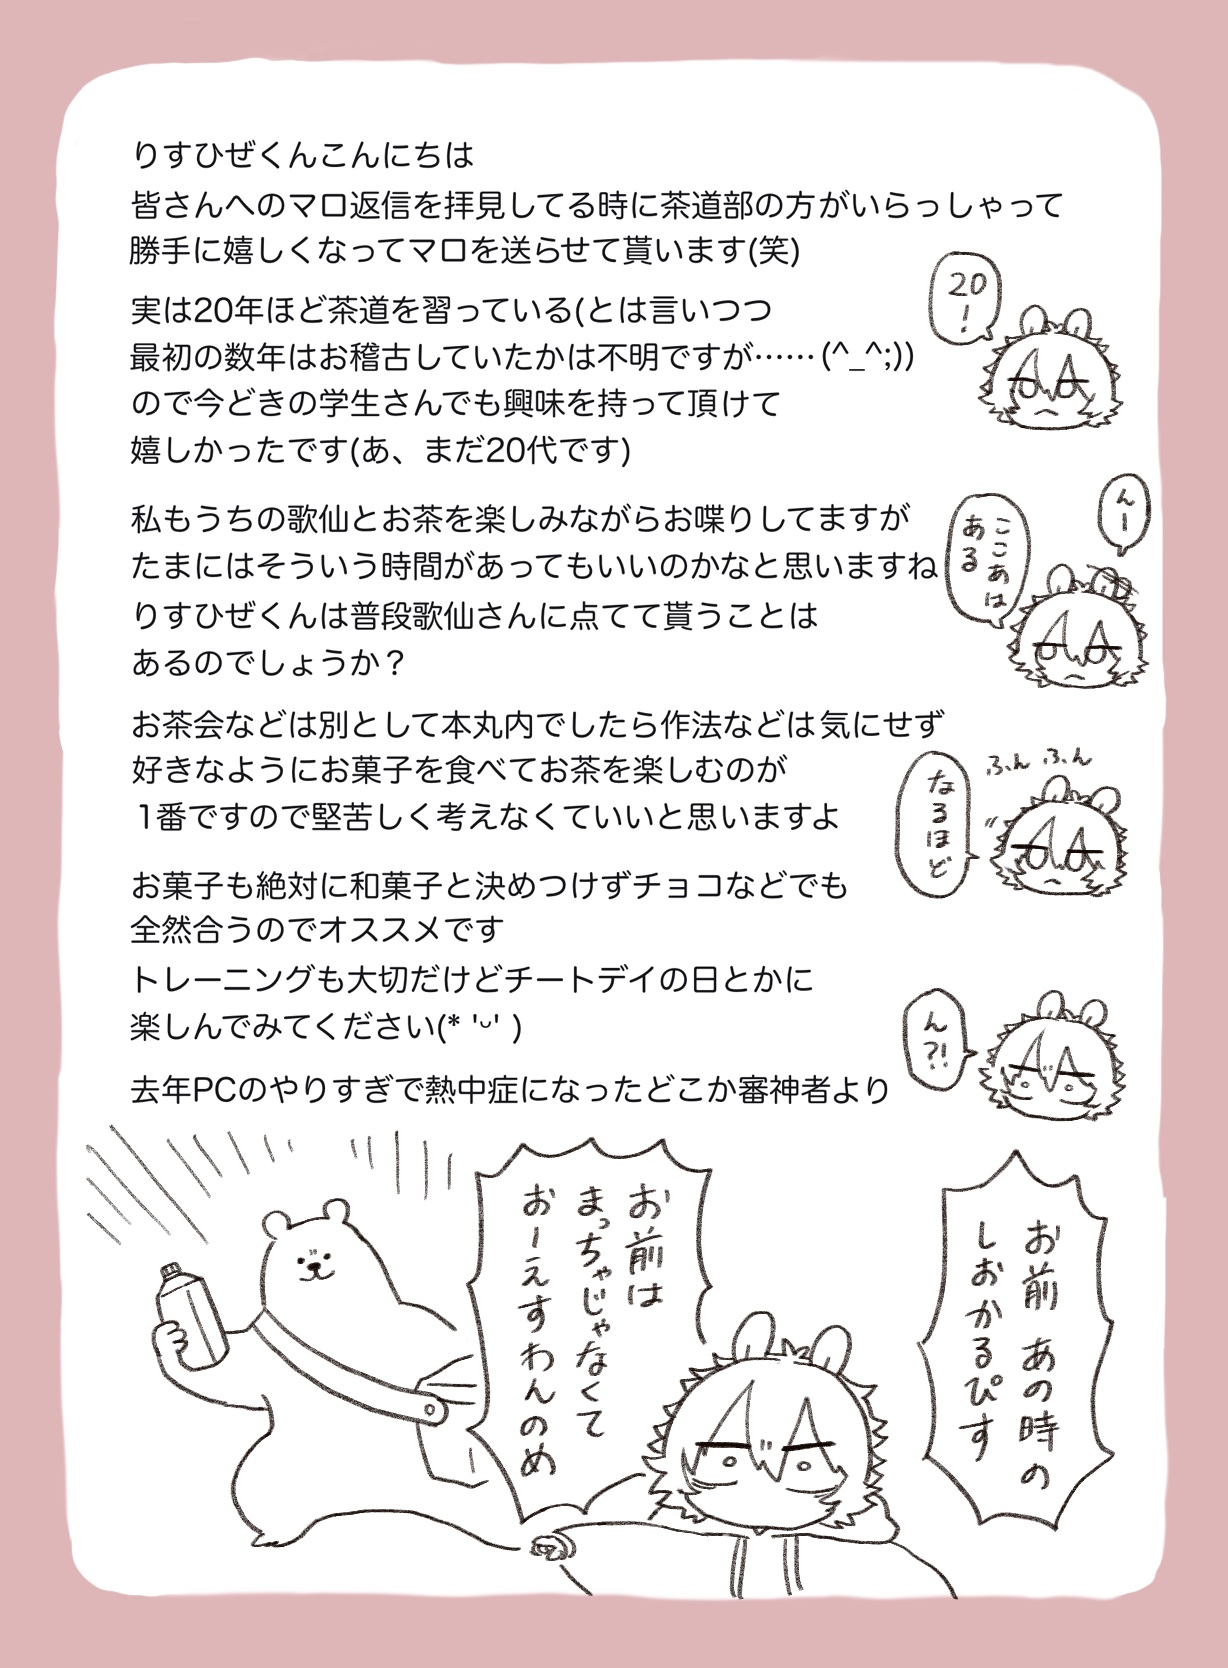 りすひぜくんこんにちは
皆さんへのマロ返信を拝見してる時に茶道部の方がいらっしゃって
勝手に嬉しくなってマロを送らせて貰います(笑)
実は20年ほど茶道を習っている(とは言いつつ
最初の数年はお稽古していたかは不明ですが……(^_^;))
ので今どきの学生さんでも興味を持って頂けて
嬉しかったです(あ、まだ20代です)
20
！
私もうちの歌仙とお茶を楽しみながらお喋りしてますが
たまにはそういう時間があってもいいのかなと思いますね
りすひぜくんは普段歌仙さんに点てて貰うことは
あるのでしょうか？
んー
ここあは
ある
お茶会などは別として本丸内でしたら作法などは気にせず
好きなようにお菓子を食べてお茶を楽しむのが
1番ですので堅苦しく考えなくていいと思いますよ
ふん ふん
なるほど
お菓子も絶対に和菓子と決めつけずチョコなどでも
全然合うのでオススメです
トレーニングも大切だけどチートデイの日とかに
楽しんでみてください(* 'ᵕ' )
去年PCのやりすぎで熱中症になったどこか審神者より
ん?!
お前 あの時の
しおかるぴす
お前は
まっちゃじゃなくて
おーえすわんのめ